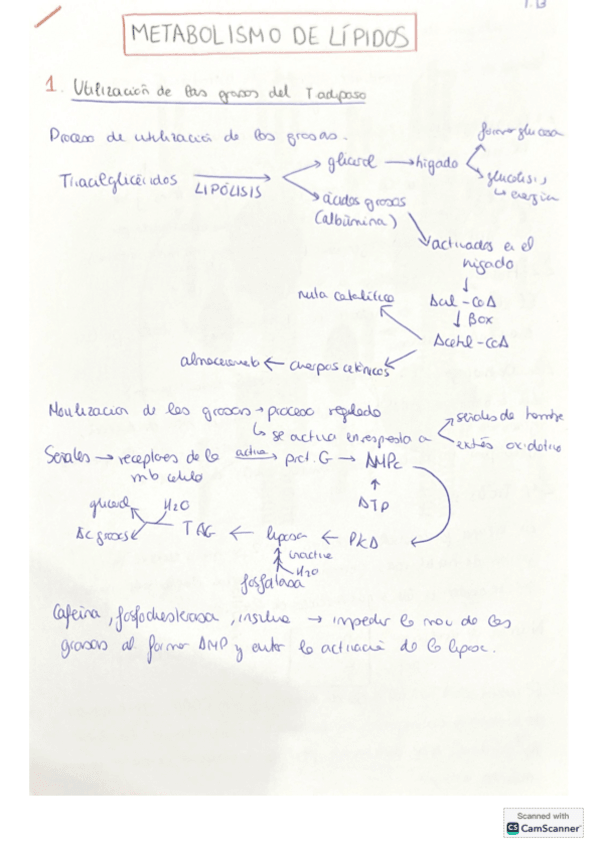 T.13
METABOLISMO DE LÍPIDOS
1. Utilización de las grasas del Tadiposo
Proceso de utilización de las grasas.
Triacilglicéridos LIPÓLISIS → glicerol → hígado → formar glucosa
glucolisis, ↳ energía
ácidos grasos (albúmina)
activados en el hígado
↓
Acil-CoA
↓ βox
Acetil-CoA
ruta catabólica
almacenamiento ← cuerpos cetónicos
Movilización de las grasas → proceso regulado
↳ se activa en respuesta a señales de hambre
estrés oxidativo
Señales → receptores de la mb celula activa → prot. G → AMPc
↑
ATP
glicerol H2O
Ac grasos TAG ← lipasa ← PKA
inactiva
H2O
fosfatasa
Cafeína, fosfodiesterasa, insulina → impedir la mov de las
grasas al formar AMP y evitar la activación de la lipasa.
Scanned with
CS CamScanner